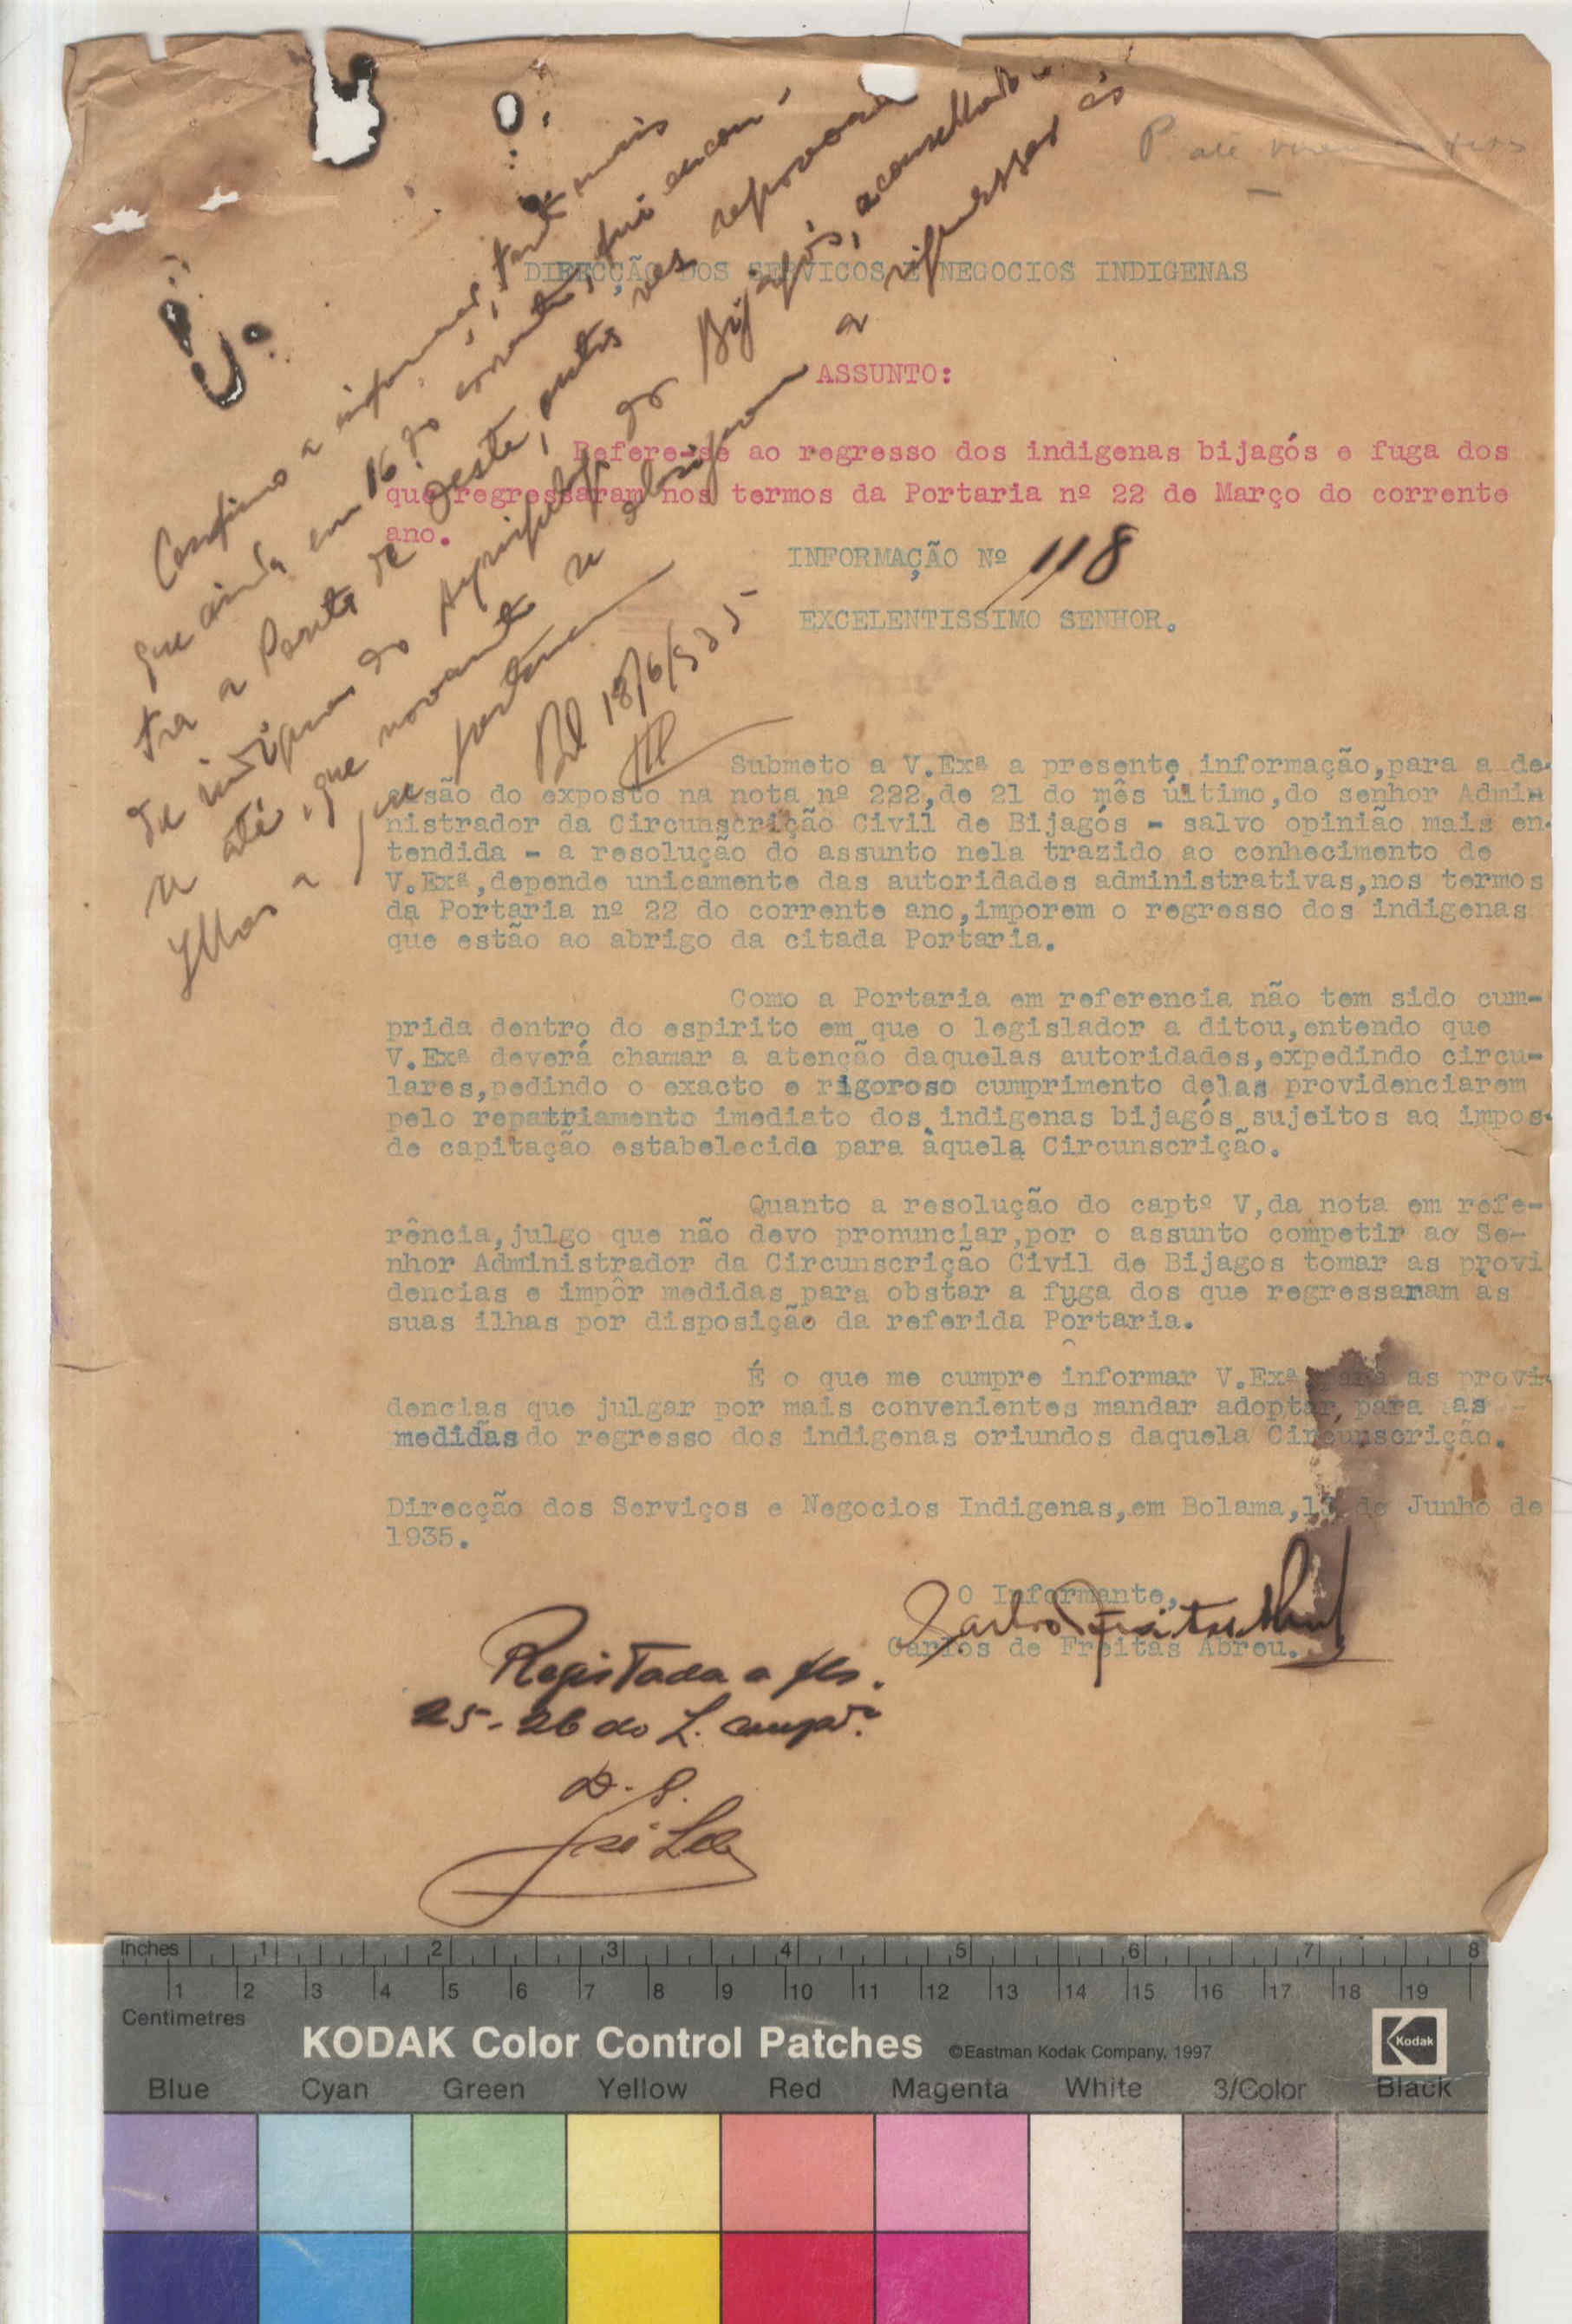 DIRECÇÃO DOS SERVIÇOS E NEGOCIOS INDIGENAS
ASSUNTO:
Refere-se ao regresso dos indigenas bijagós e fuga dos
que regressaram nos termos da Portaria nº 22 de Março do corrente
ano.
INFORMAÇÃO Nº 118
EXCELENTISSIMO SENHOR.
Confirmo a informação, tanto mais
que ainda em 16 do corrente, fui encon-
tra a Ponta de Oeste, outra vez
de indigenas do Bijagós, aconselhando
até que novamente se a regressar ás
Ilhas a que
Bl 18/6/935
Submeto a V.Exª a presente informação,para a de-
cisão do exposto na nota nº 222,de 21 do mês último,do senhor Admin
nistrador da Circunscrição Civil de Bijagós - salvo opinião mais en-
tendida - a resolução do assunto nela trazido ao conhecimento de
V.Exª,depende unicamente das autoridades administrativas,nos termos
da Portaria nº 22 do corrente ano,imporem o regresso dos indigenas
que estão ao abrigo da citada Portaria.
Como a Portaria em referencia não tem sido cum-
prida dentro do espirito em que o legislador a ditou,entendo que
V.Exª deverá chamar a atenção daquelas autoridades,expedindo circu-
lares,pedindo o exacto e rigoroso cumprimento delas providenciarem
pelo repatriamento imediato dos indigenas bijagós sujeitos ao impos-
de capitação estabelecido para àquela Circunscrição.
Quanto a resolução do captº V,da nota em refe-
rência,julgo que não devo pronunciar,por o assunto competir ao Se-
nhor Administrador da Circunscrição Civil de Bijagos tomar as provi
dencias e impôr medidas para obstar a fuga dos que regressaram as
suas ilhas por disposição da referida Portaria.
É o que me cumpre informar V.Exª para as provi-
dencias que julgar por mais convenientes mandar adoptar, para as
medidas do regresso dos indigenas oriundos daquela Circunscrição.
Direcção dos Serviços e Negocios Indigenas,em Bolama, de Junho de
1935.
O Informante,
Carlos de Freitas Abreu
Carlos de Freitas Abreu.
Registada a fls.
25-26 do L. compe.
D. S.
Inches 1 2 3 4 5 6 7 8
1 2 3 4 5 6 7 8 9 10 11 12 13 14 15 16 17 18 19
Centimetres
KODAK Color Control Patches ©Eastman Kodak Company, 1997 Kodak
Blue Cyan Green Yellow Red Magenta White 3/Color Black